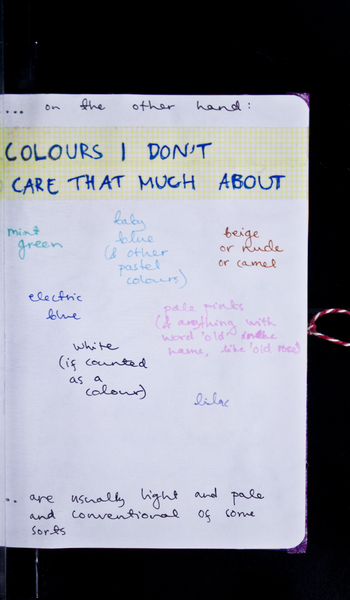 ... on the other hand:
COLOURS I DON'T
CARE THAT MUCH ABOUT
mint
green
baby
blue
(& other
pastel
colours)
beige
or nude
or camel
electric
blue
pale pinks
(& anything with
word 'old' in the
name, like 'old rose')
white
(if counted
as a
colour)
lilac
.. are usually light and pale
and conventional of some
sorts